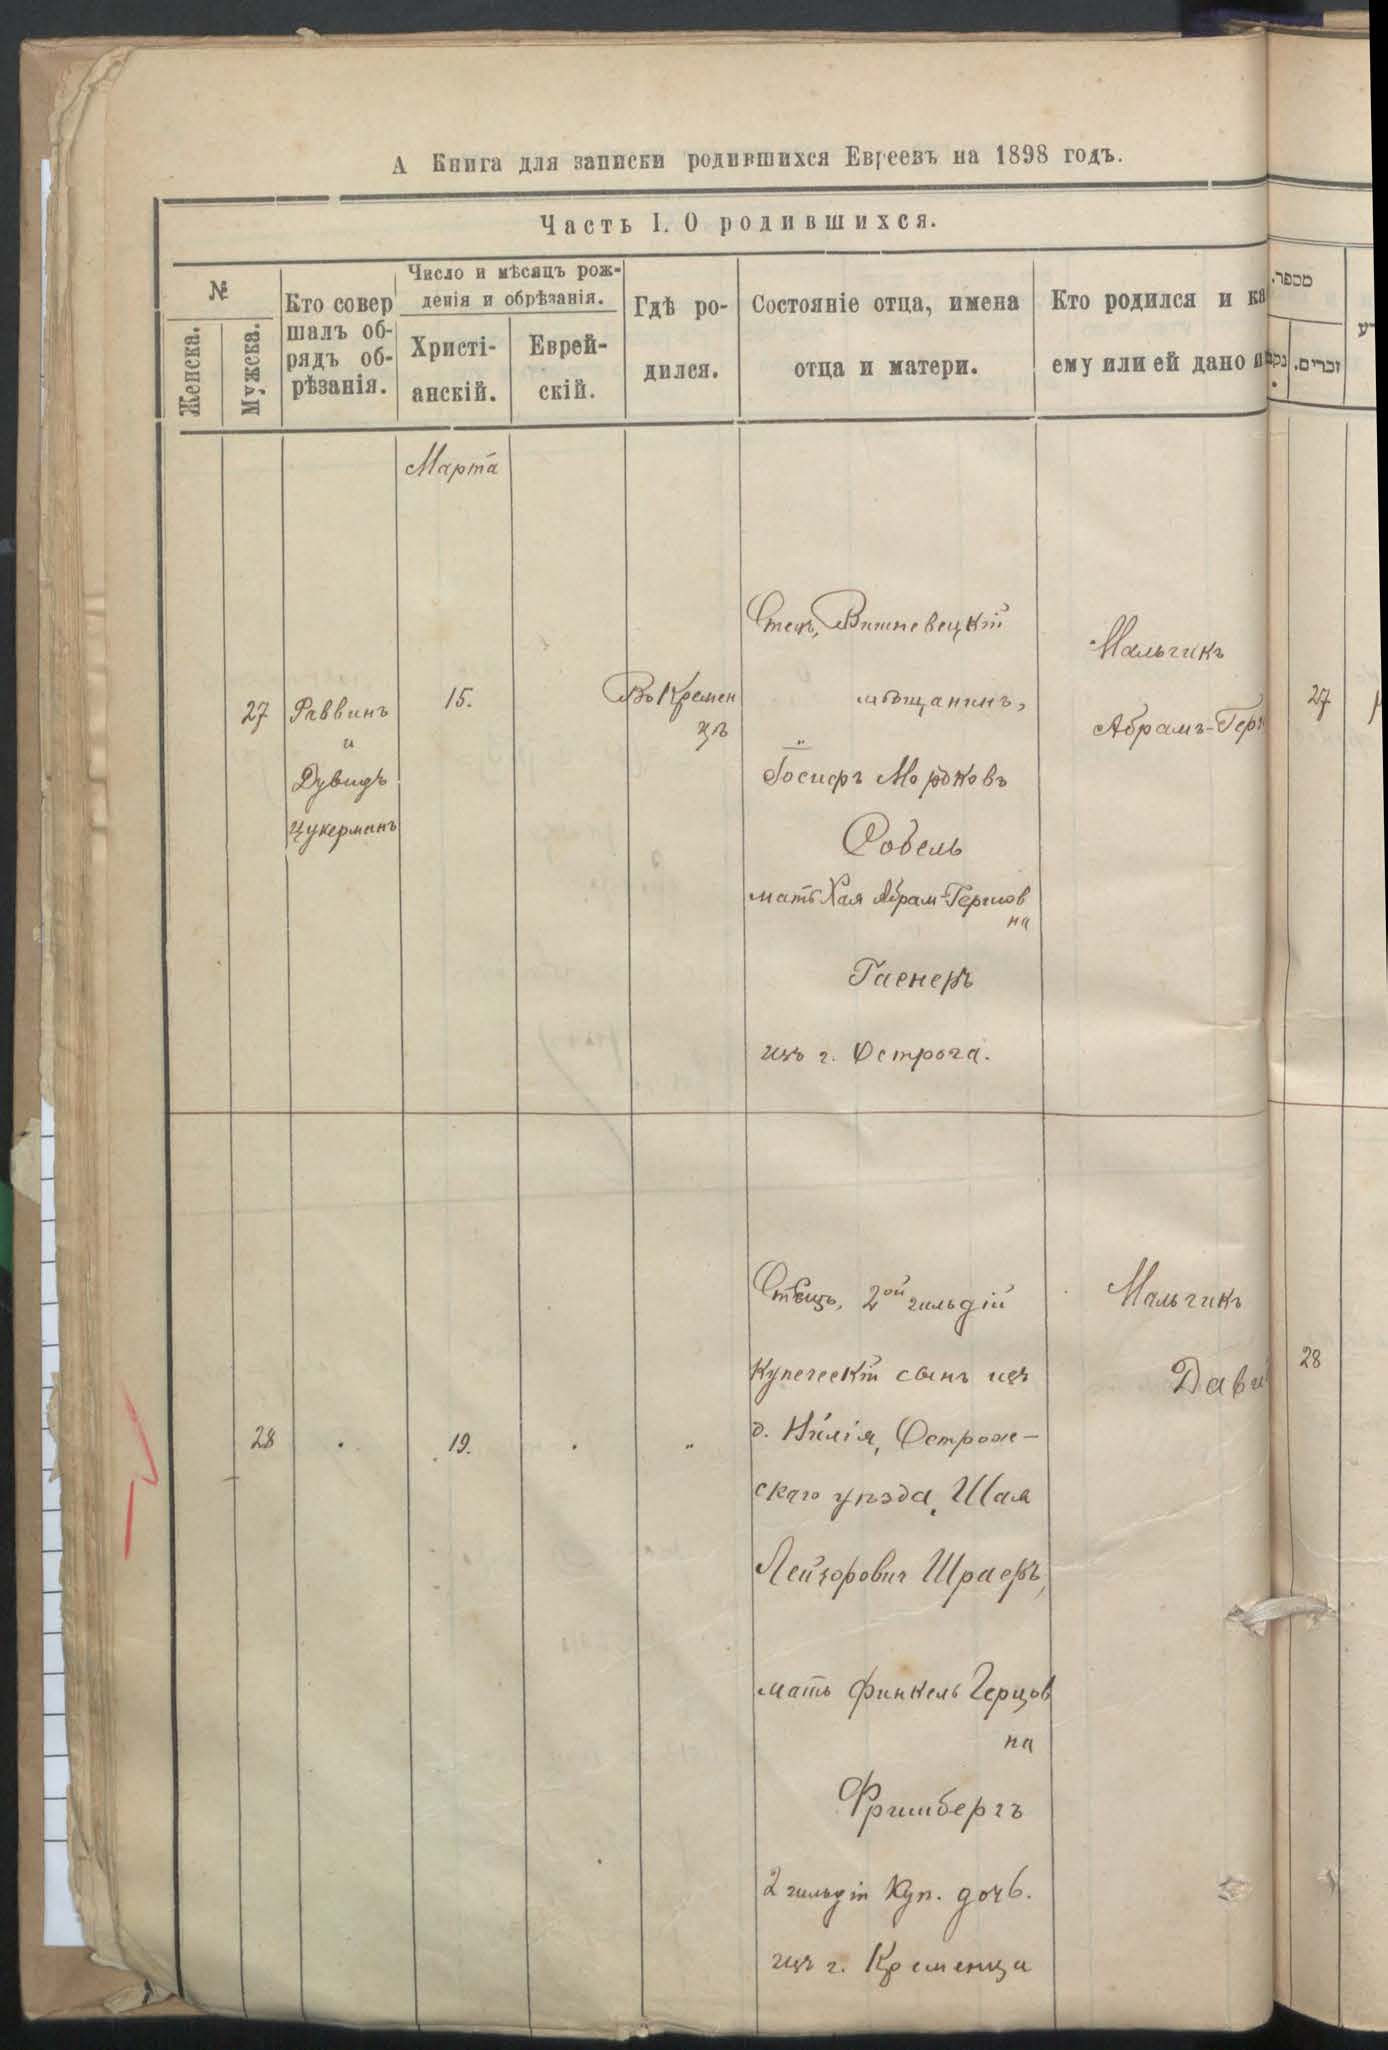 А Книга для записки родившихся Евреевъ на 1898 годъ.
Часть I. О родившихся.
№
Женска.
Мужска.
Кто совер
шалъ об-
рядъ об-
рѣзанія.
Число и мѣсяцъ рож-
денія и обрѣзанія.
Христі-
анскій.
Еврей-
скій.
Гдѣ ро-
дился.
Состояніе отца, имена
отца и матери.
Кто родился и ка
ему или ей дано и
מספר.
זכרים.
Марта
27
Раввинъ
и
Дувидъ
Цукерманъ
15.
Въ Кремен
цѣ
Отецъ, Вишневецкій
мѣщанинъ,
Іосифъ Мордковъ
Робель
мать Хая Абрам-Гершов
на
Гаенеръ
изъ г. Острога.
Мальчикъ
Абрамъ-Гер
27
28
19.
Отецъ, 2ой гильдіи
Купеческій сынъ изъ
д. Нилія, Острож-
скаго уѣзда, Шая
Лейзоровичъ Шраеръ,
мать Финкель Герцов
на
Фришбергъ
2 гильдіи Куп. дочь.
изъ г. Кременца
Мальчикъ
Дави
28